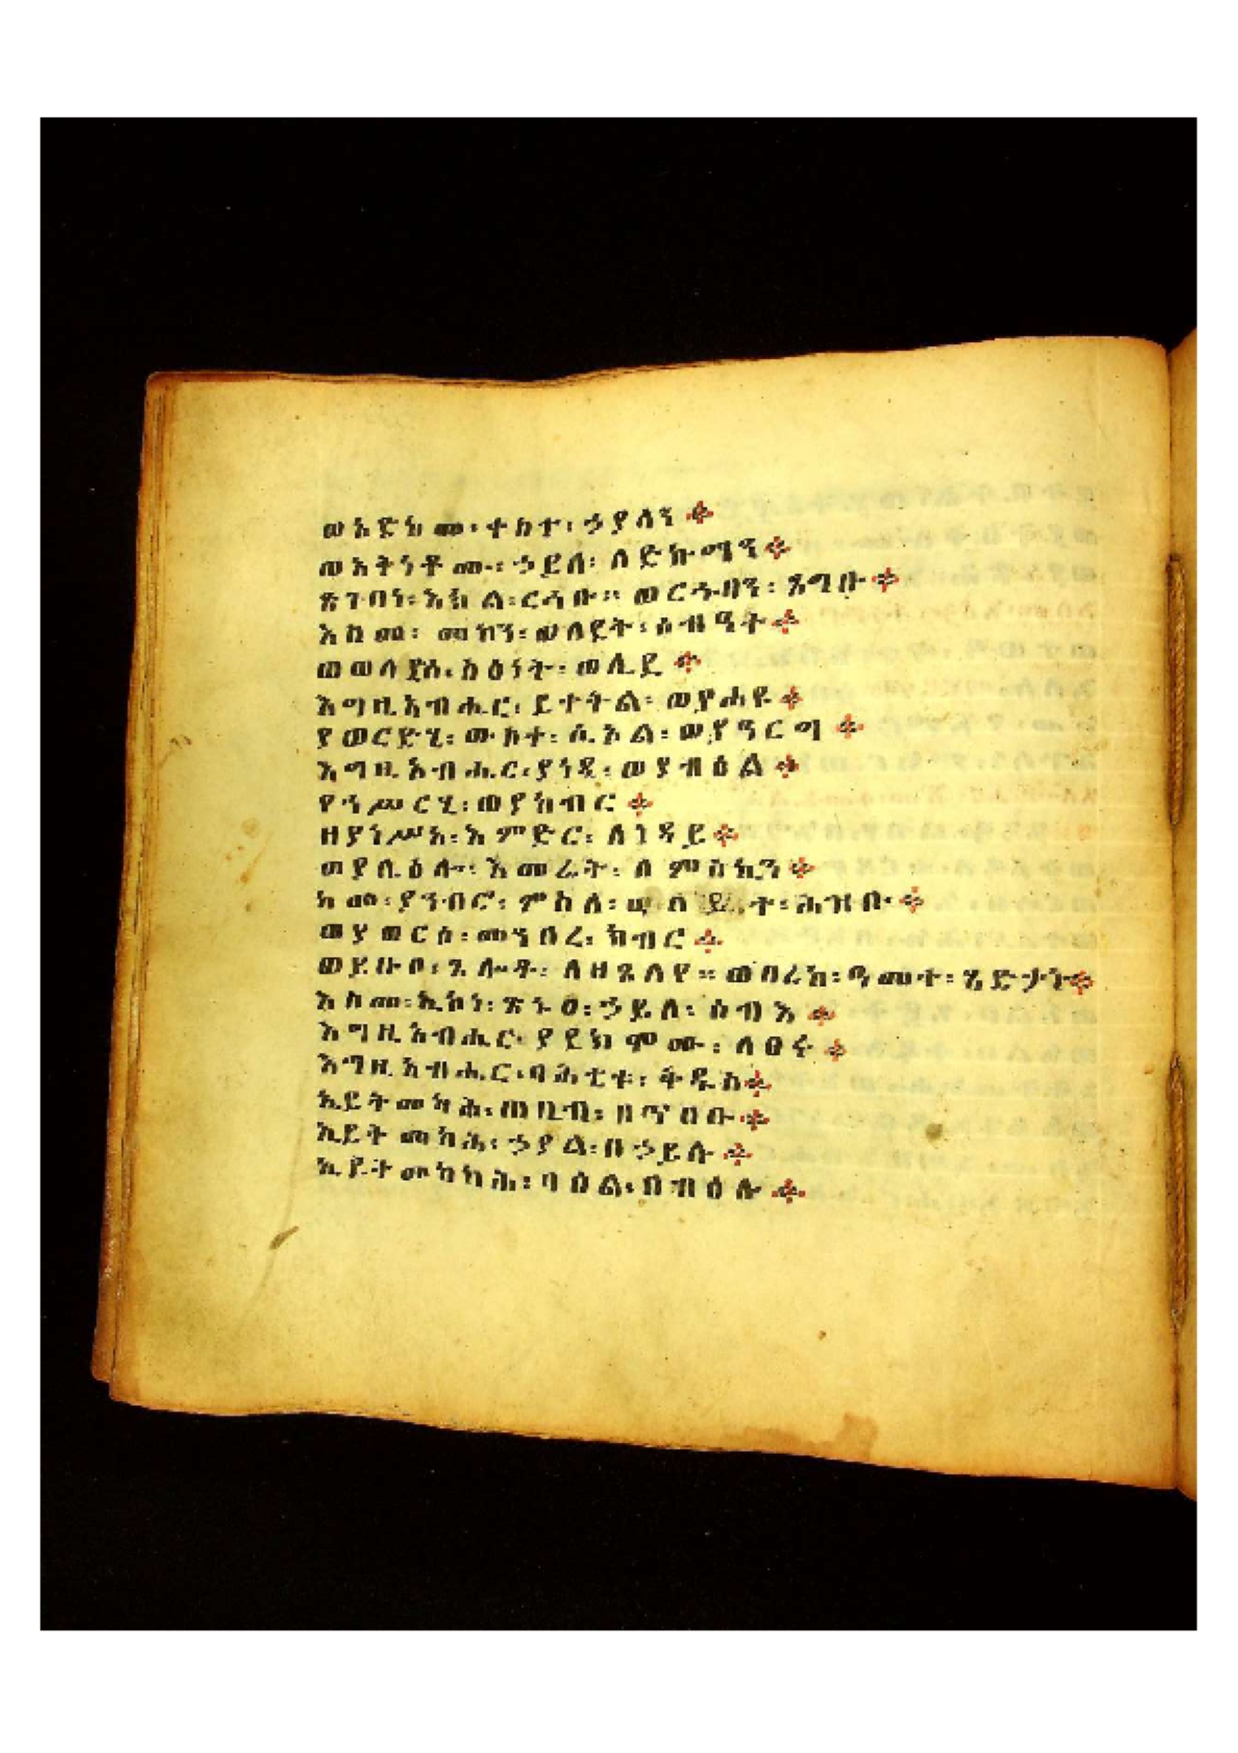 ወአድከመ፡ ተከተ፡ ኃያላን ።
ወአቅነቶሙ፡ ኃይለ፡ ለድኩማን ።
ጽጉባነ፡ እክል፡ ርኅቡ። ወርኁባን፡ ጸግቡ ።
እስመ፡ መካን፡ ወለደት፡ ሰብዓተ ።
ወወላድሰ፡ ስእነት፡ ወሊደ ።
እግዚአብሔር፡ ይቀትል፡ ወያሐዩ ።
ያወርድሂ፡ ውስተ፡ ሲኦል፡ ወያዓርግ ።
እግዚአብሔር፡ ያነዲ፡ ወያብዕል ።
የኀሥርሂ፡ ወያከብር ።
ዘያነሥአ፡ እምድር፡ ለነዳይ ።
ወያሌዕሎ፡ እመሬት፡ ለምስኪን ።
ከመ፡ ያንብሮ፡ ምስለ፡ ሕዝቡ ።
ወያወርሶ፡ መንበረ፡ ክብር ።
ወይሁቦ፡ ጸሎቶ፡ ለዘጸለየ። ወባረከ፡ ዓመተ፡ ጻድቃን ።
እስመ፡ ኢኮነ፡ ጽኑዐ፡ ኃይለ፡ ሰብእ ።
እግዚአብሔር፡ ያደክሞሙ፡ ለፀሩ ።
እግዚአብሔር፡ ባሕቲቱ፡ ቅዱስ ።
ኢይትመካሕ፡ ጠቢብ፡ በጥበቡ ።
ኢይትመካሕ፡ ኃያል፡ በኃይሉ ።
ኢይትመካካሕ፡ ባዕል፡ በብዕሉ ።